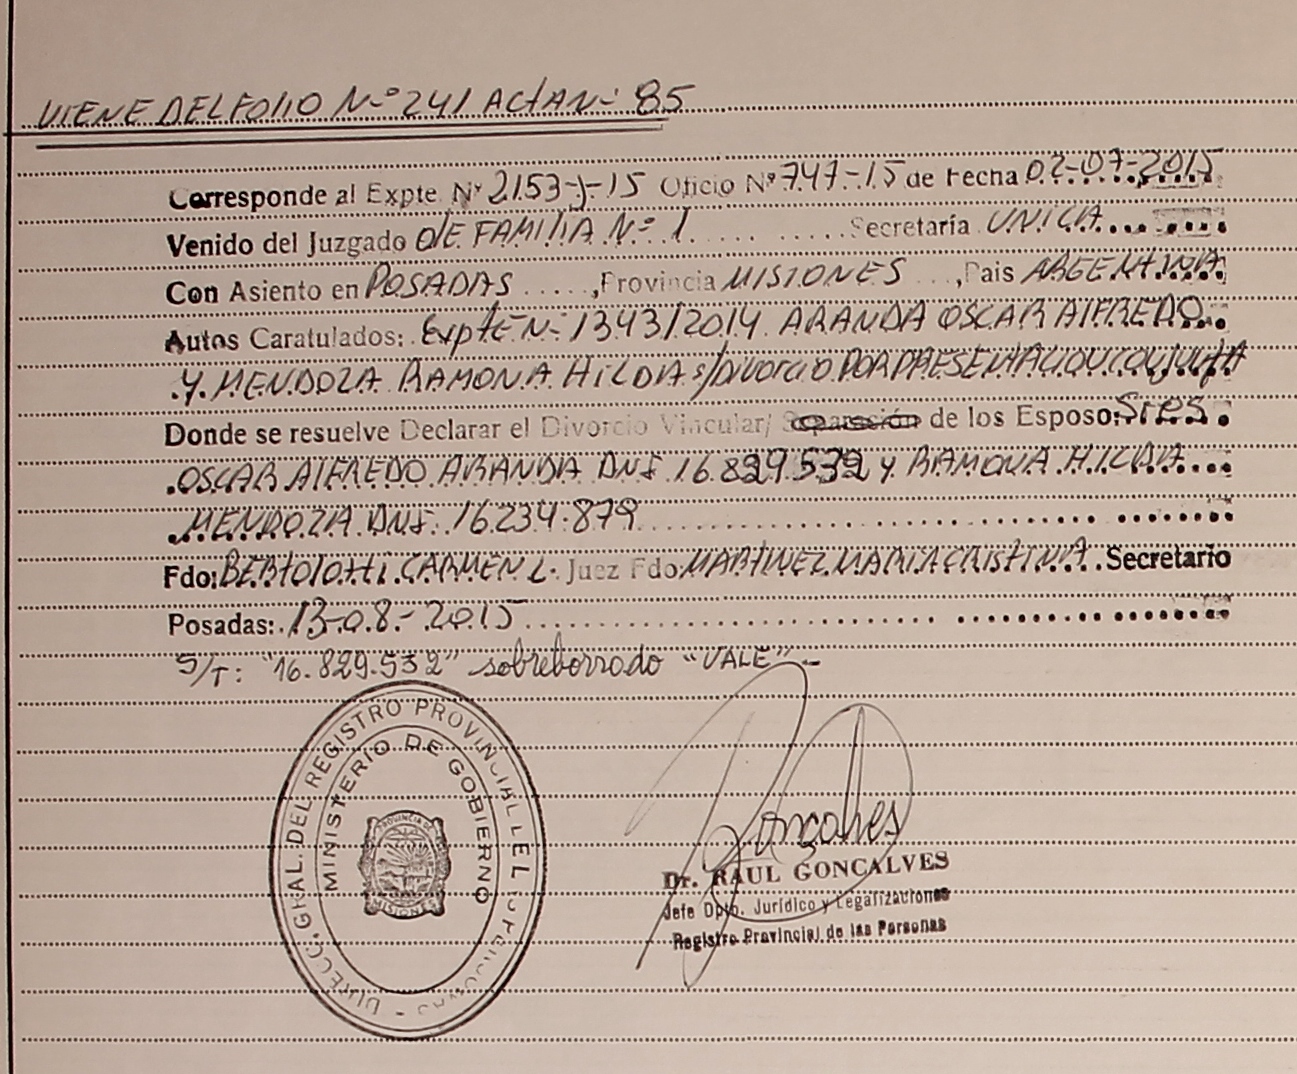 VIENE DEL FOLIO N-º 241 ACTA N-º 85
Corresponde al Expte Nº 2153-J-15 Oficio Nº 747-15 de Fecha 02-07-2015
Venido del Juzgado de FAMILIA Nº 1 Secretaría UNICA
Con Asiento en POSADAS, Provincia MISIONES, Pais ARGENTINA
Autos Caratulados: Expte N-º 1343/2014 ARANDA OSCAR ALFREDO
Y MENDOZA RAMONA HILDA s/DIVORCIO POR PRESENTACION CONJUNTA
Donde se resuelve Declarar el Divorcio Vincular/ Separación de los Esposo: Sres.
OSCAR ALFREDO ARANDA DNI 16.829.532 y RAMONA HILDA
MENDOZA DNI. 16.234.879
Fdo: BERTOLOTTI CARMEN L. Juez Fdo MARTINEZ MARIA CRISTINA Secretario
Posadas: 13-08-2015
S/T: "16.829.532" sobreborrado "VALE"-
DIRECC. GRAL. DEL REGISTRO PROVINCIAL DE
MINISTERIO DE GOBIERNO
PROVINCIA DE
MISIONES
Goncalves
Dr. RAUL GONCALVES
Jefe Dpto. Jurídico y Legalizaciones
Registro Provincial de las Personas